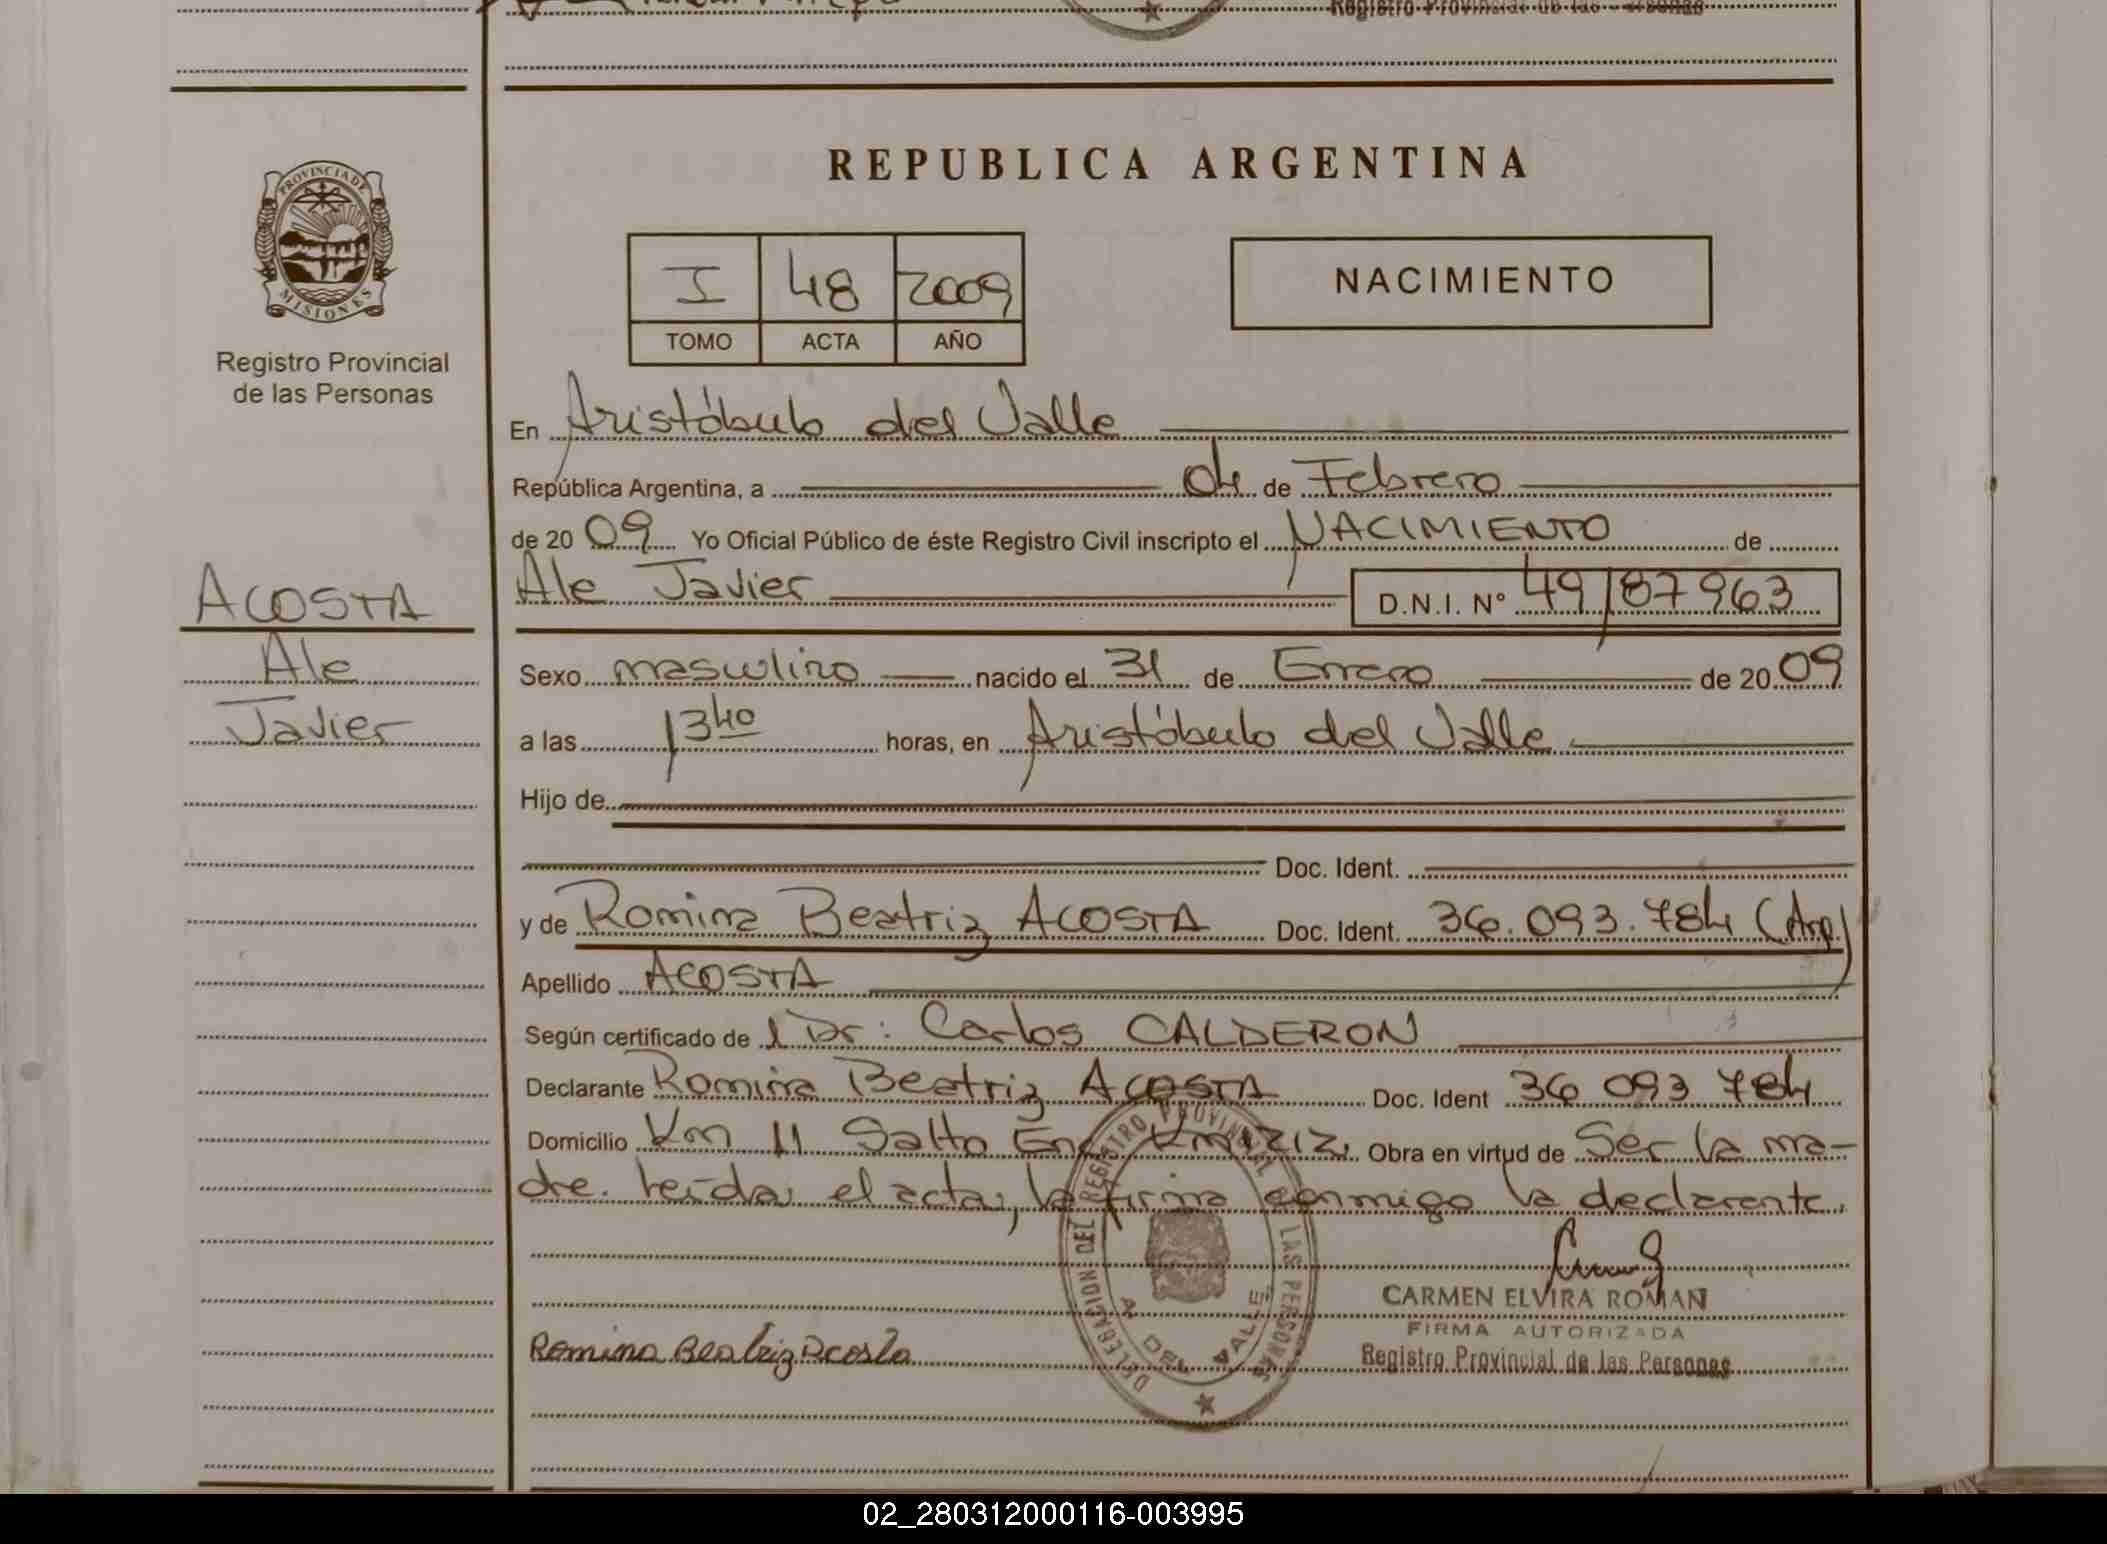 Registro Provincial de las Personas
PROVINCIA DE
MISIONES
Registro Provincial
de las Personas
REPUBLICA ARGENTINA
I 48 2009
TOMO ACTA AÑO
NACIMIENTO
En Aristóbulo del Valle
República Argentina, a 04 de Febrero
de 20 09 Yo Oficial Público de éste Registro Civil inscripto el NACIMIENTO de
ACOSTA
Ale Javier D.N.I. N° 49187963
Ale
Javier
Sexo masculino nacido el 31 de Enero de 20 09
a las 13 40 horas, en Aristóbulo del Valle
Hijo de
Doc. Ident.
y de Romina Beatriz ACOSTA Doc. Ident. 36.093.784 (Arg.)
Apellido ACOSTA
Según certificado de l Dr: Carlos CALDERON
Declarante Romina Beatriz ACOSTA Doc. Ident 36 093 784
Domicilio Km 11 Salto Enc Km 1212, Obra en virtud de Ser la ma-
dre. Leída el acta, la firma conmigo la declarante.
DELEGACION DEL REGISTRO PROVINCIAL DE LAS PERSONAS
A. DEL VALLE
CARMEN ELVIRA ROMAN
FIRMA AUTORIZADA
Registro Provincial de las Personas
Romina Beatriz Acosta
02_280312000116-003995